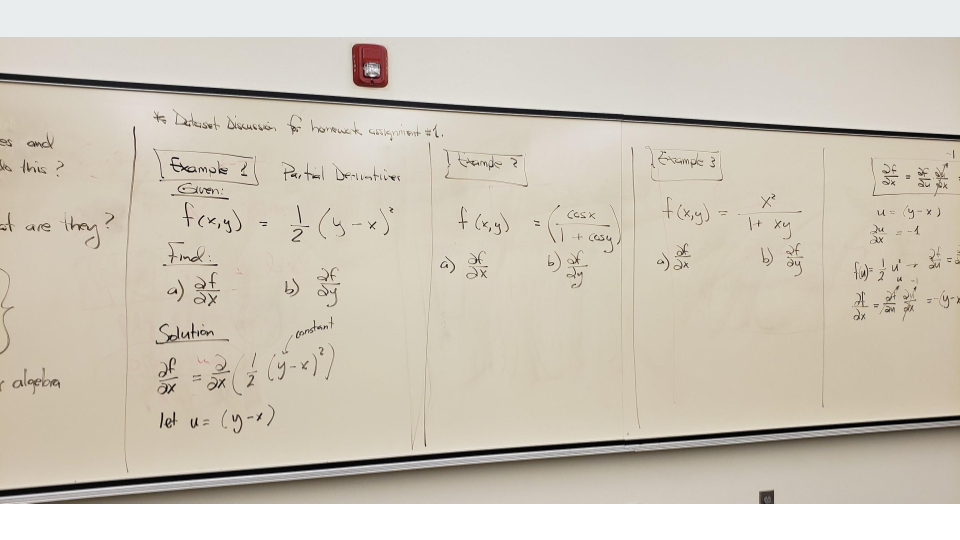 es and
do this ?
at are they?
r algebra
* Dataset Discussion for homework assignment #1.
Example 1 Partial Derivatives
Given:
f(x,y) = 1/2 (y-x)²
Find:
a) ∂f/∂x b) ∂f/∂y
Solution
constant
∂f/∂x = ∂/∂x (1/2 (y-x)²)
let u = (y-x)
Example 2
f(x,y) = (cosx / 1 + cosy)
a) ∂f/∂x b) ∂f/∂y
Example 3
f(x,y) = x² / 1+ xy
a) ∂f/∂x b) ∂f/∂y
-1
∂f/∂x = ∂f/∂u ∂u/∂x =
u = (y-x)
∂u/∂x = -1
f(u) = 1/2 u² → ∂f/∂u =
u -1
∂f/∂x = ∂f/∂u ∂u/∂x = -(y-x